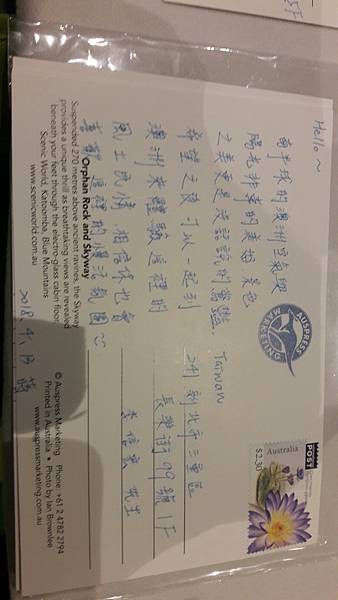 Hello~
南半球的澳洲空氣暖
陽光非常的美好 景色
之美更是沒話說的
希望之後可以一起到
澳洲來體驗這裡的
風土民情 相信你也會
喜歡這裡的慢活氛圍
Orphan Rock and Skyway
Suspended 270 metres above ancient ravines, the Skyway
provides a unique thrill as breathtaking views are revealed
beneath your feet through the electro-glass cabin floor.
Scenic World, Katoomba, Blue Mountains
www.scenicworld.com.au
AUSPRESS
MARKETING
POST
Australia
$2.30
Taiwan
241 新北市三重區
長樂街99號1F
李信宏 先生
© Auspress Marketing Phone: +61 2 4782 2794
Printed in Australia • Photo by Ian Brownlee
www.auspressmarketing.com.au
5F